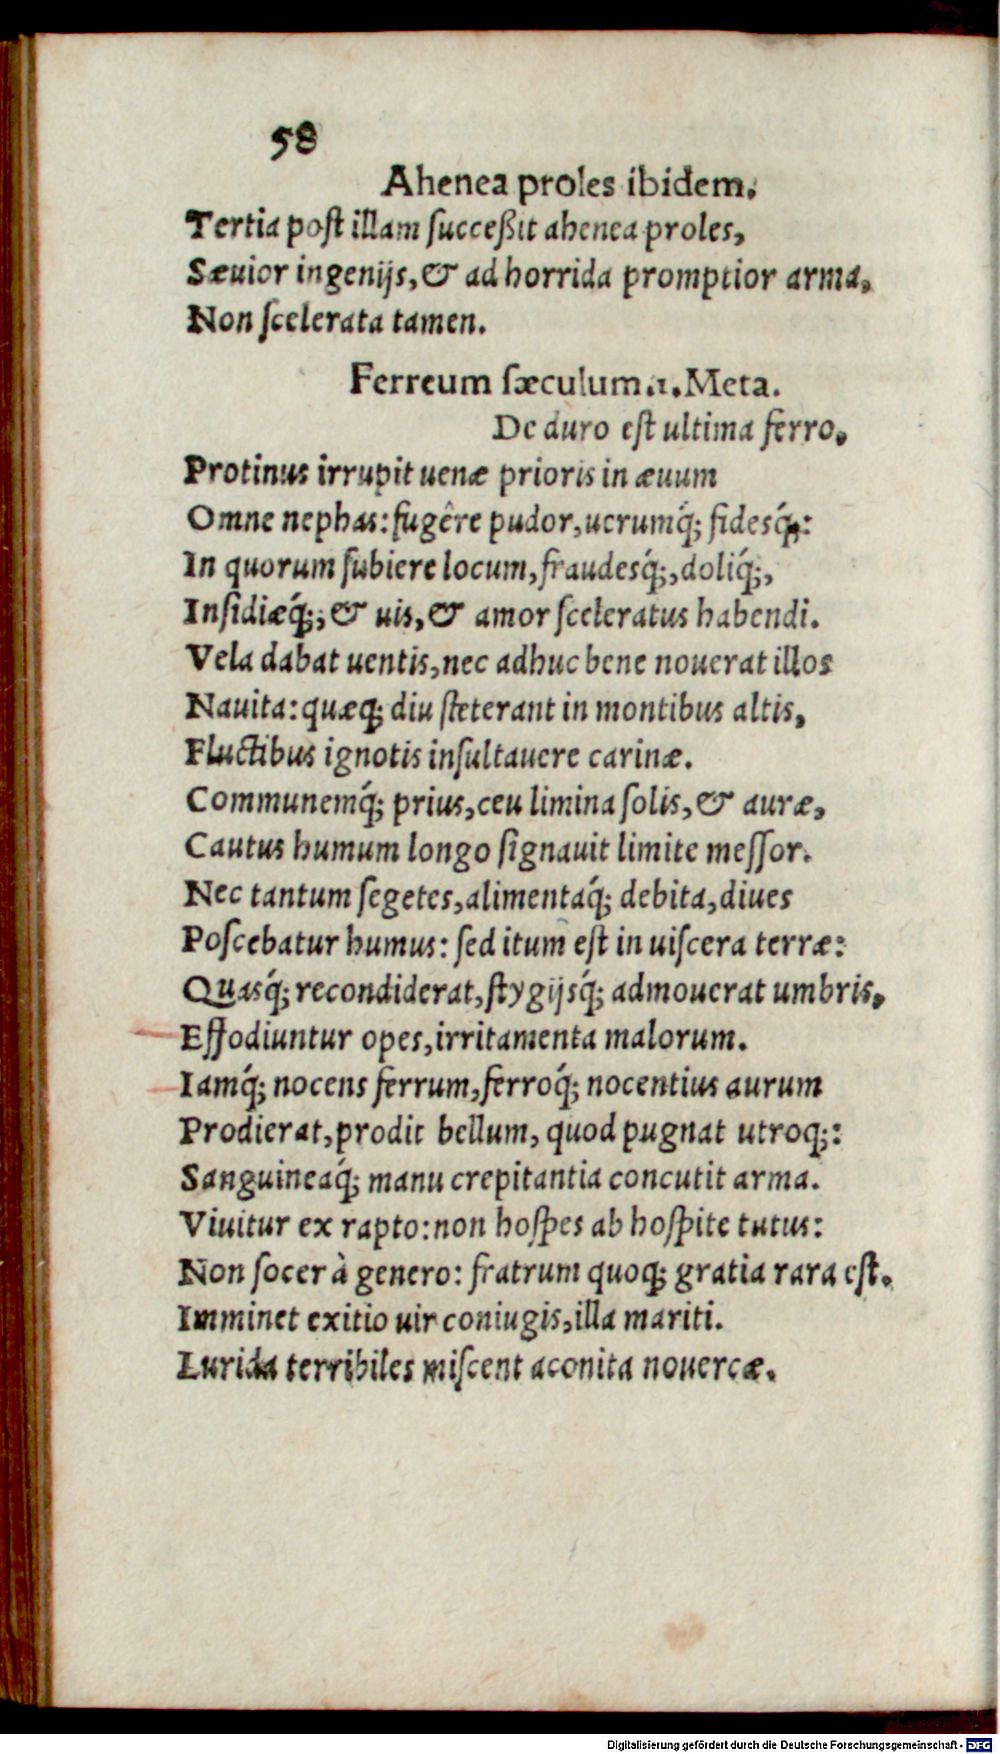 58
Ahenea proles ibidem.
Tertia poſt illam ſucceßit ahenea proles,
Sæuior ingenijs, & ad horrida promptior arma,
Non ſcelerata tamen.
Ferreum ſæculum.1.Meta.
De duro eſt ultima ferro.
Protinus irrupit uenæ prioris in æuum
Omne nephas: fugêre pudor, uerumq́; fidesq́;:
In quorum ſubiere locum, fraudesq́;, doliq́;,
Inſidiæq́;, & uis, & amor ſceleratus habendi.
Vela dabat uentis, nec adhuc bene nouerat illos
Nauita: quæq; diu ſteterant in montibus altis,
Fluctibus ignotis inſultauere carinæ.
Communemq́; prius, ceu limina ſolis, & auræ,
Cautus humum longo ſignauit limite meſſor.
Nec tantum ſegetes, alimentaq́; debita, diues
Poſcebatur humus: ſed itum eſt in uiſcera terræ:
Quasq́; recondiderat, ſtygijsq́; admouerat umbris,
Effodiuntur opes, irritamenta malorum.
Iamq́; nocens ferrum, ferroq́; nocentius aurum
Prodierat, prodit bellum, quod pugnat utroq;:
Sanguineaq́; manu crepitantia concutit arma.
Viuitur ex rapto: non hoſpes ab hoſpite tutus:
Non ſocer à genero: fratrum quoq; gratia rara eſt.
Imminet exitio uir coniugis, illa mariti.
Lurida terribiles miſcent aconita nouercæ.
Digitalisierung gefördert durch die Deutsche Forschungsgemeinschaft - DFG